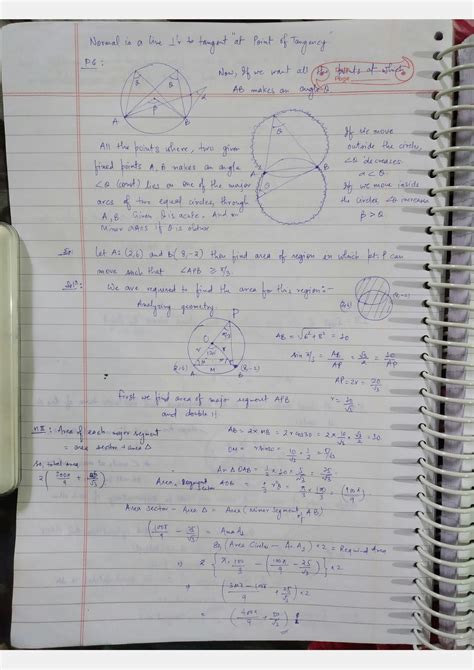 Normal is a line ⊥'r to tangent "at Point of Tangency"
P.6:
Now, If we want all the points at which
AB makes an angle θ
All the points where, two given
fixed points A, B makes an angle
∠θ (const) lies on one of the major
arcs of two equal circles, through
A, B. Given θ is acute, And in
Minor arcs if θ is obtuse
If we move
outside the circle,
∠θ decreases
α < θ.
If we move inside
the circle ∠θ increases
β > θ
Ex: Let A: (2,6) and B(8,-2) then find area of region in which pt. P can
move such that ∠APB ≥ π/3
Solⁿ: We are required to find the area for this region:-
Analyzing geometry:
P
C
(2,6) A
M
B (8,-2)
AB = √6²+8² = 10
sin π/3 = AB/AP = √3/2 = 10/AP
AP = 2r = 20/√3
r = 10/√3
First we find area of major segment APB
and double it
M.II: Area of each major segment
= area sector + area Δ
so, total area
2(200π/9 + 25/√3)
AB = 2 x MB = 2 r cos30 = 2 x 10/√3 x √3/2 = 10
OM = r sin 30 = 10/√3 x 1/2 = 5/√3
Ar. Δ OAB = 1/2 x 10 x 5/√3 = 25/√3
Area, Segment Sector AOB = π/3 r² = π/3 x 100/3 = (100π/9)
Area sector - Area Δ = Area (Minor segment of AB)
(100π/9 - 25/√3) = Area A₂
(Area Circle - Ar A₂) x 2 = Required Area
⇒ {π.100/3 - (100π/9 - 25/√3)} x 2
⇒ (300π - 100π/9 + 25/√3) x 2
= (400π/9 + 50/√3)